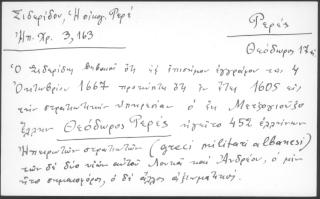 Σιδερίδου, Ἡ οἰκογ. Ρερέ
Ἠπ. Χρ. 3, 163
Ρερές
Θεόδωρος
Ὁ Σιδερίδης ὅτι ἐξ ἐπισήμου ἐγγράφου τῆς 4
Ὀκτωβρίου 1667 προκύπτει ὅτι ἐν ἔτει 1605 εἰς
τὴν στρατιωτικὴν ὑπηρεσίαν ὁ ἐκ
Ἕλλην Θεόδωρος Ρερές ἡγεῖτο 452 ἑλλήνων
Ἠπειρωτῶν στρατιωτῶν (greci militari albanesi)
τῶν δὲ δύο υἱῶν αὐτοῦ Λουκᾶ καὶ Ἀνδρέου, ὁ μὲν
ἦτο σημαιοφόρος, ὁ δὲ ἄλλος ἀξιωματικός.